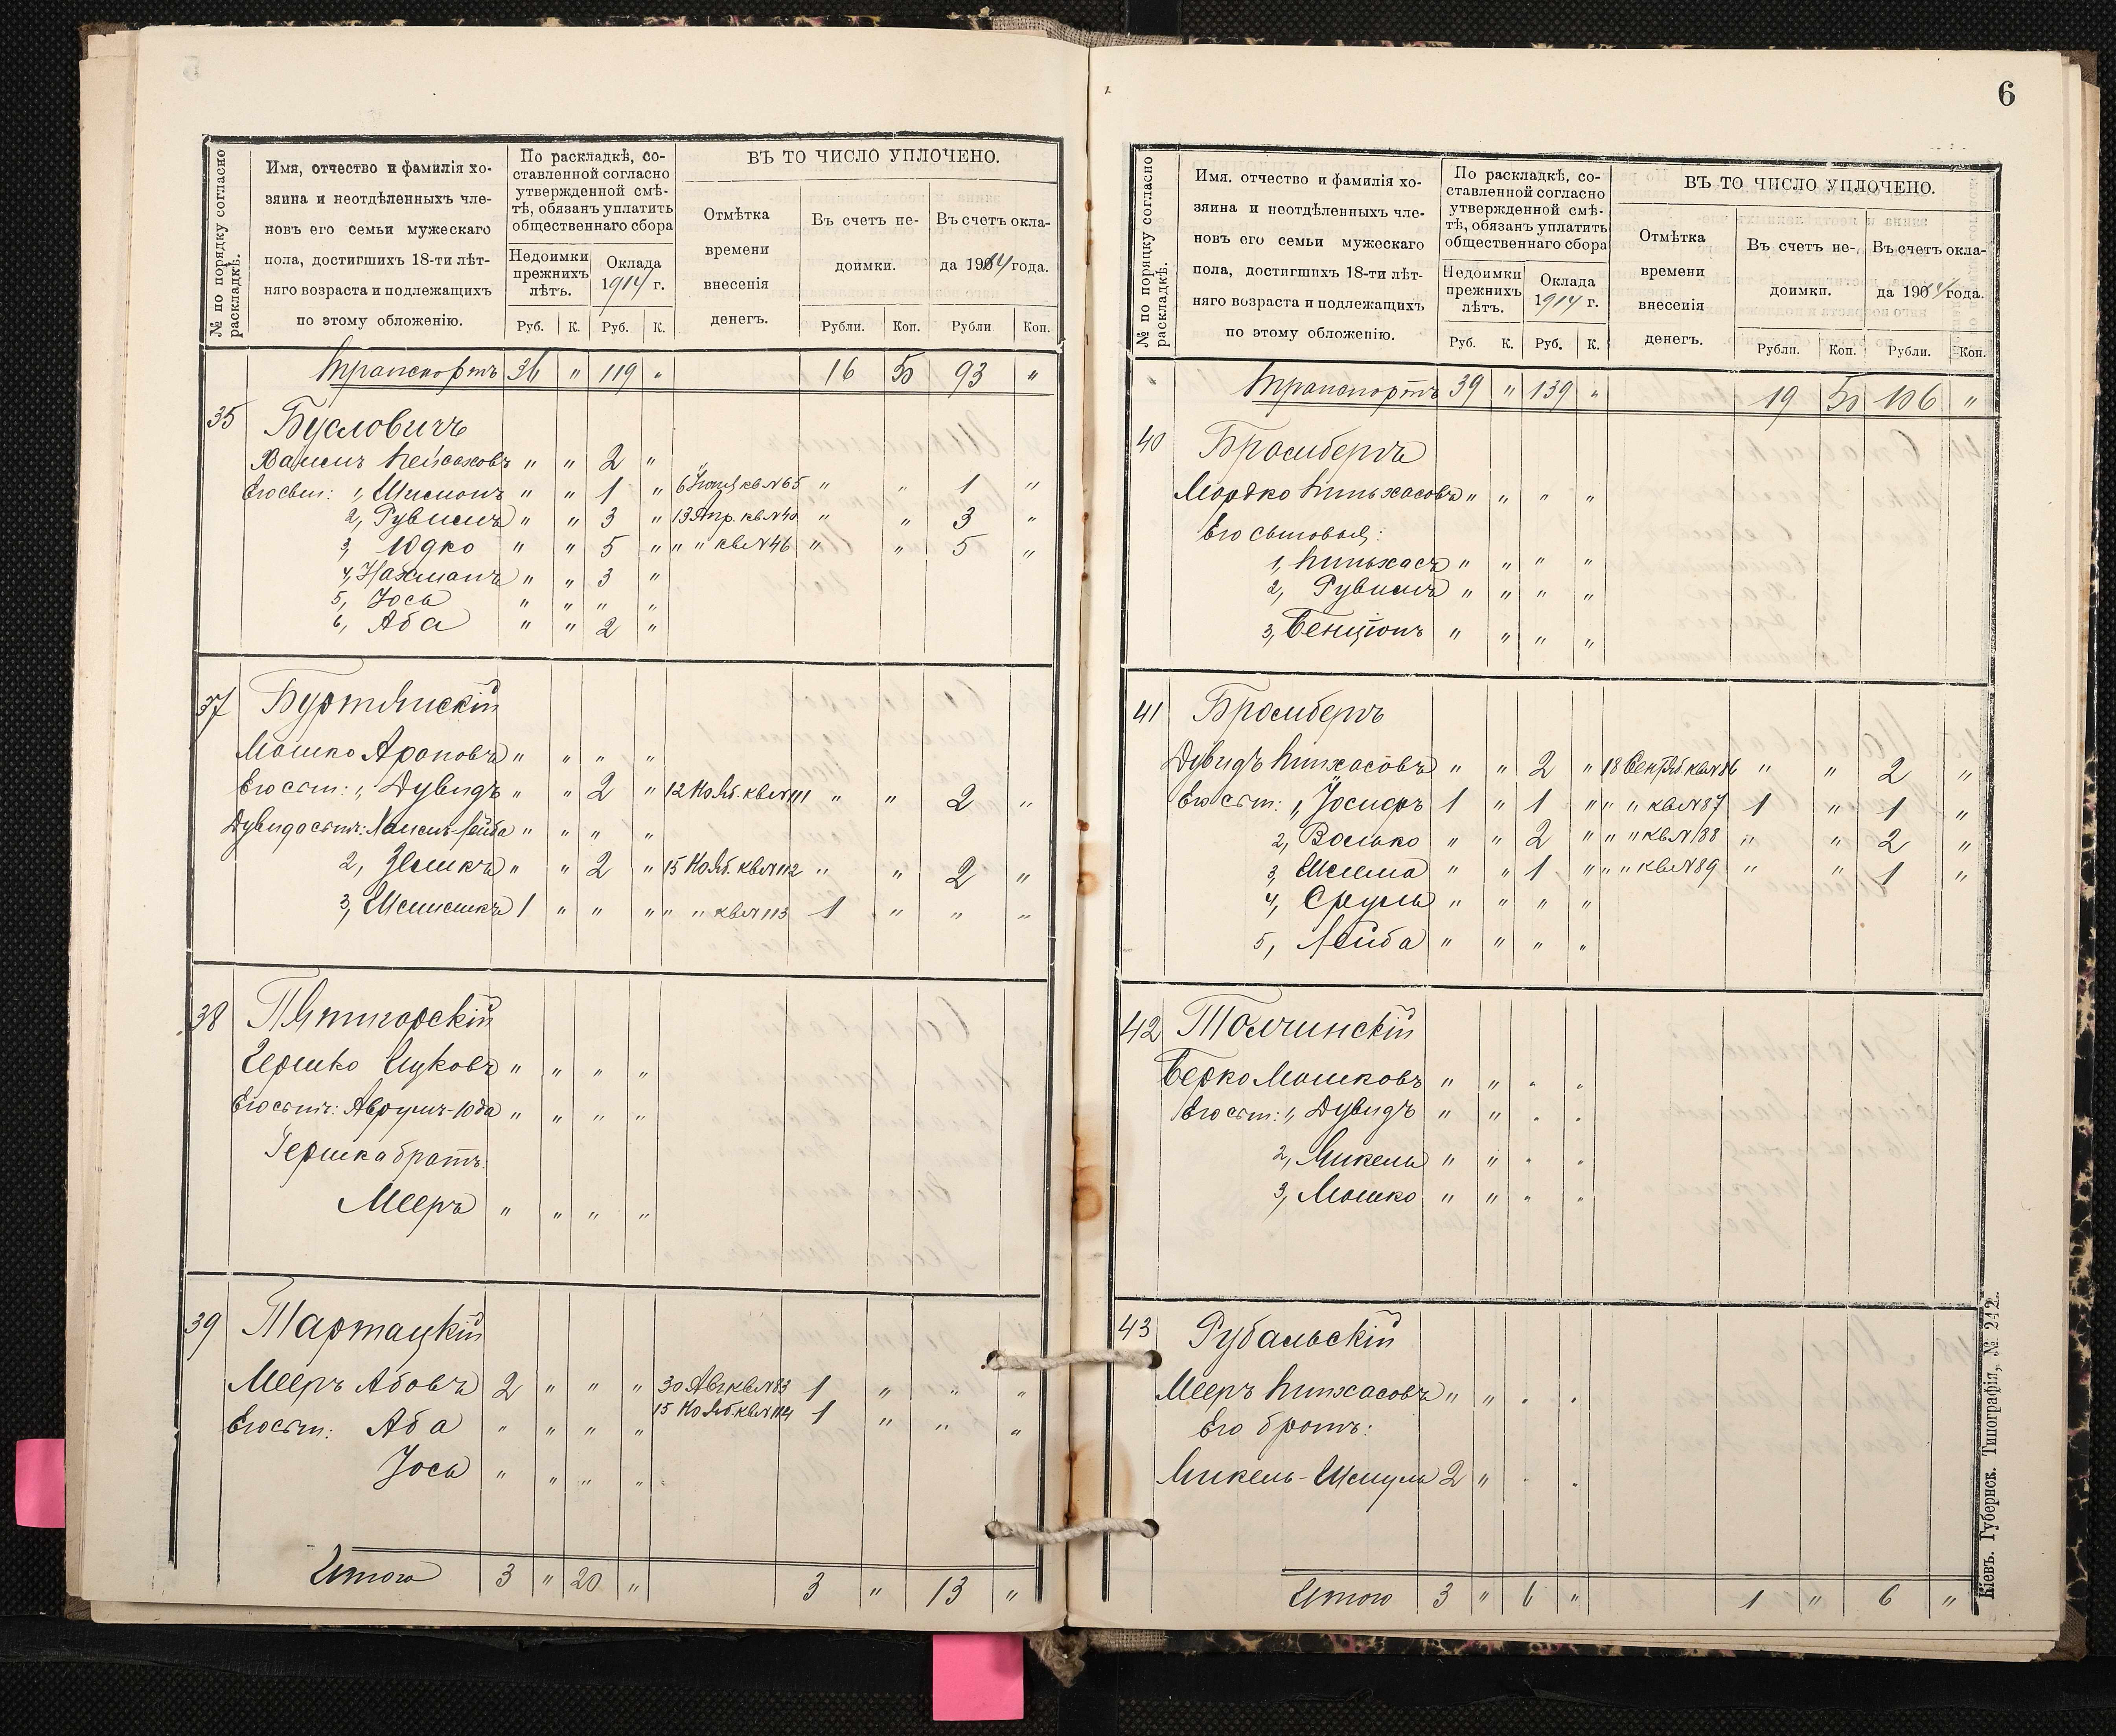 № по порядку согласно раскладкѣ.
Имя, отчество и фамилія хо-
зяина и неотдѣленныхъ чле-
новъ его семьи мужескаго
пола, достигшихъ 18-ти лѣт-
няго возраста и подлежащихъ
по этому обложенію.
По раскладкѣ, со-
ставленной согласно
утвержденной смѣ-
тѣ, обязанъ уплатить
общественнаго сбора
Недоимки прежнихъ лѣтъ.
Оклада 1914 г.
Руб. К. Руб. К.
ВЪ ТО ЧИСЛО УПЛОЧЕНО.
Отмѣтка
времени
внесенія
денегъ.
Въ счетъ не-
доимки.
Въ счетъ окла-
да 1914 года.
Рубли. Коп. Рубли Коп.
Транспортъ 36 " 119 " 16 50 93 "
35 Бусловичъ
Хаимъ Пейсаховъ " " 2 "
Его свм: 1, Шимонъ " " 1 " 6 Іюня кв №65 " " 1 "
2, Рувимъ " " 3 " 13 Апр. кв №40 " " 3 "
3, Юдко " " 5 " " " кв №46 " " 5 "
4, Нахманъ " " 3 "
5, Іось " " " "
6, Аба " " 2 "
37 Буртянскій
Мошко Ароновъ " " " "
Его сын: 1, Дувидъ " " 2 " 12 Нояб. кв №111 " " 2 "
Дувида сын: Хаимъ-Лейба " " " "
2, Зеликъ " " 2 " 15 Нояб. кв №112 " " 2 "
3, Шлиомкъ 1 " " " " " кв №113 1 " " "
38 Пятигорскій
Гершко Ицковъ " " " "
Его сынъ: Аврумъ-Юда " " " "
Гершка братъ:
Мееръ " " " "
39 Тартацкій
Мееръ Абовъ 2 " " " 30 Авг кв №83 1 " " "
15 Нояб. кв №114
Его сын: Аба " " " " 1 " " "
Іось " " " "
Итого 3 " 20 " 3 " 13 "
6
№ по порядку согласно раскладкѣ.
Имя. отчество и фамилія хо-
зяина и неотдѣленныхъ чле-
новъ его семьи мужескаго
пола, достигшихъ 18-ти лѣт-
няго возраста и подлежащихъ
по этому обложенію.
По раскладкѣ, со-
ставленной согласно
утвержденной смѣ-
тѣ, обязанъ уплатить
общественнаго сбора
Недоимки прежнихъ лѣтъ.
Оклада 1914 г.
Руб. К. Руб. К.
ВЪ ТО ЧИСЛО УПЛОЧЕНО.
Отмѣтка
времени
внесенія
денегъ.
Въ счетъ не-
доимки.
Въ счетъ окла-
да 1914 года.
Рубли. Коп. Рубли. Коп.
Транспортъ 39 " 139 " 19 50 106 "
40 Бромбергъ
Мордко Пиньхасовъ " " " "
Его сыновья:
1, Пиньхасъ " " " "
2, Рувимъ " " " "
3, Бенціонъ " " " "
41 Бромбергъ
Дувидъ Пинхасовъ " " 2 " 18 Сентяб. кв №86 " " 2 "
Его сын: 1, Іосифъ 1 " 1 " " " кв №87 1 " 1 "
2, Волько " " 2 " " " кв №88 " " 2 "
3, Шлема " " 1 " " " кв №89 " " 1 "
4, Сруль " " " "
5, Лейба " " " "
42 Толчинскій
Берко Мошковъ " " " "
Его сын: 1, Дувидъ " " " "
2, Микель " " " "
3, Мошко " " " "
43 Рубальскій
Мееръ Пинхасовъ " " " "
Его братъ:
Микель-Шмуль 2 " " "
Итого 3 " 6 " 1 " 6 "
Кіевъ. Губернск. Типографія, № 242.